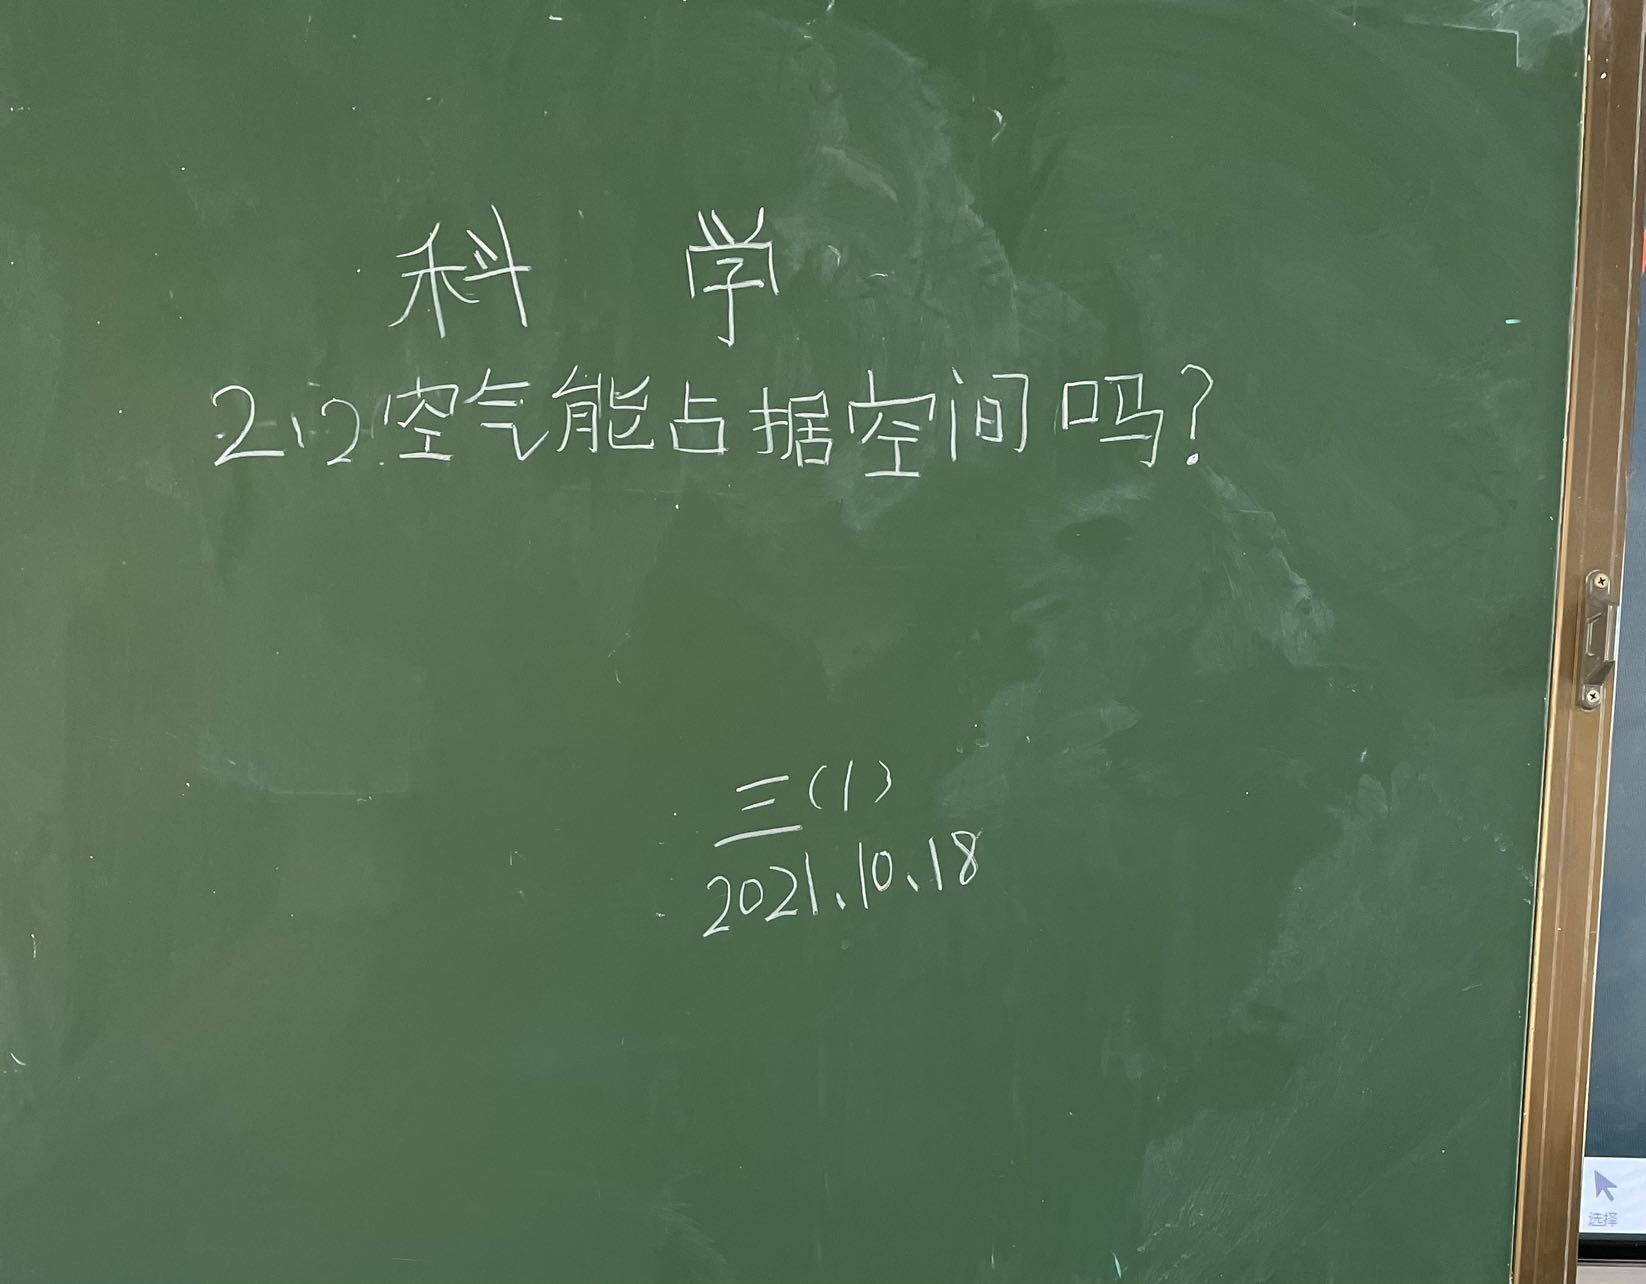 科 学
2.2空气能占据空间吗?
三(1)
2021.10.18
选择